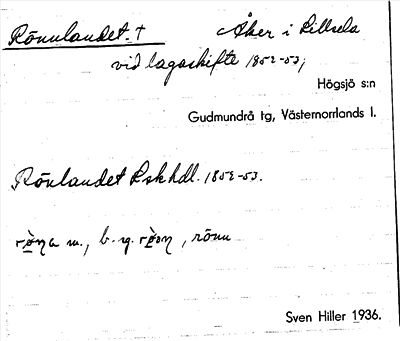 Rönnlandet. † Åker i Lillsela
vid lagaskifte 1852-53;
Högsjö s:n
Gudmundrå tg, Västernorrlands l.
Rönlandet Lskhdl. 1852-53.
b. rönn
Sven Hiller 1936.